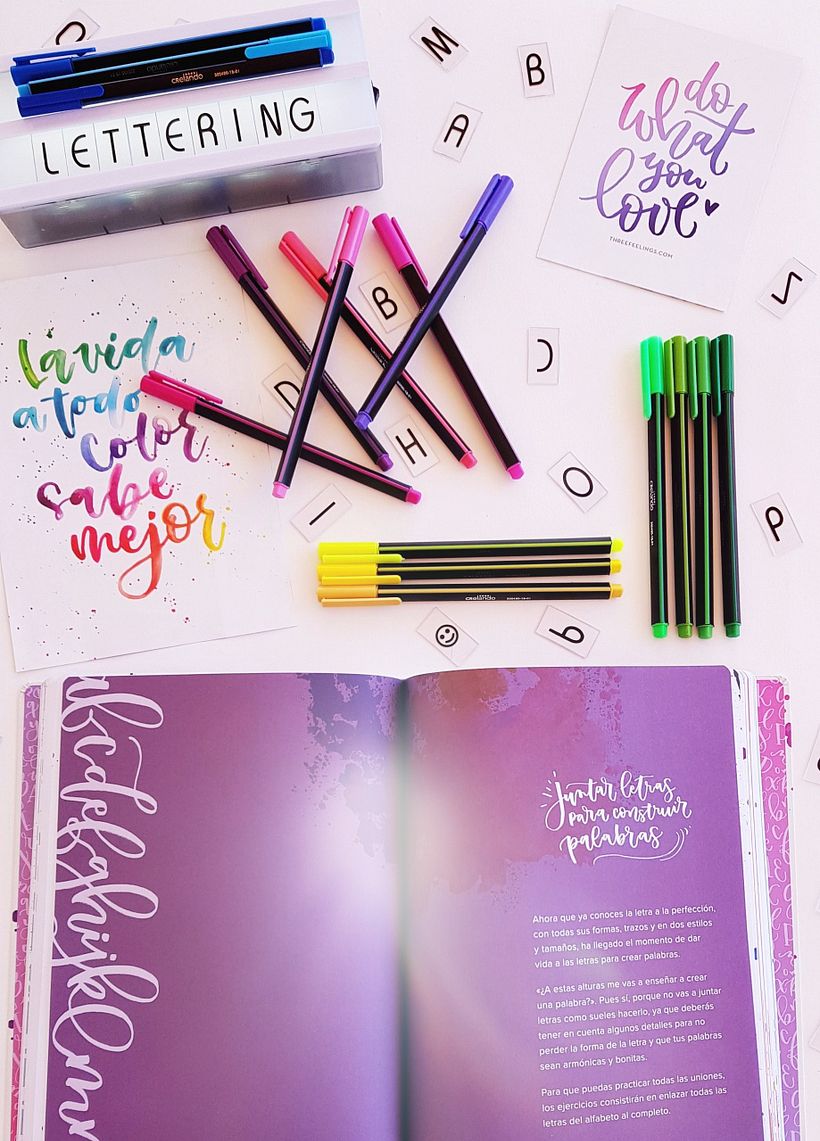 crelando
LETTERING
M
B
A
do
what
you
love
THREEFEELINGS.COM
La vida
a todo
color
sabe
mejor
B
D
H
I
O
P
crelando
abcdefghijklmn
Juntar letras
para construir
palabras
Ahora que ya conoces la letra a la perfección,
con todas sus formas, trazos y en dos estilos
y tamaños, ha llegado el momento de dar
vida a las letras para crear palabras.
«¿A estas alturas me vas a enseñar a crear
una palabra?». Pues sí, porque no vas a juntar
letras como sueles hacerlo, ya que deberás
tener en cuenta algunos detalles para no
perder la forma de la letra y que tus palabras
sean armónicas y bonitas.
Para que puedas practicar todas las uniones,
los ejercicios consistirán en enlazar todas las
letras del alfabeto al completo.